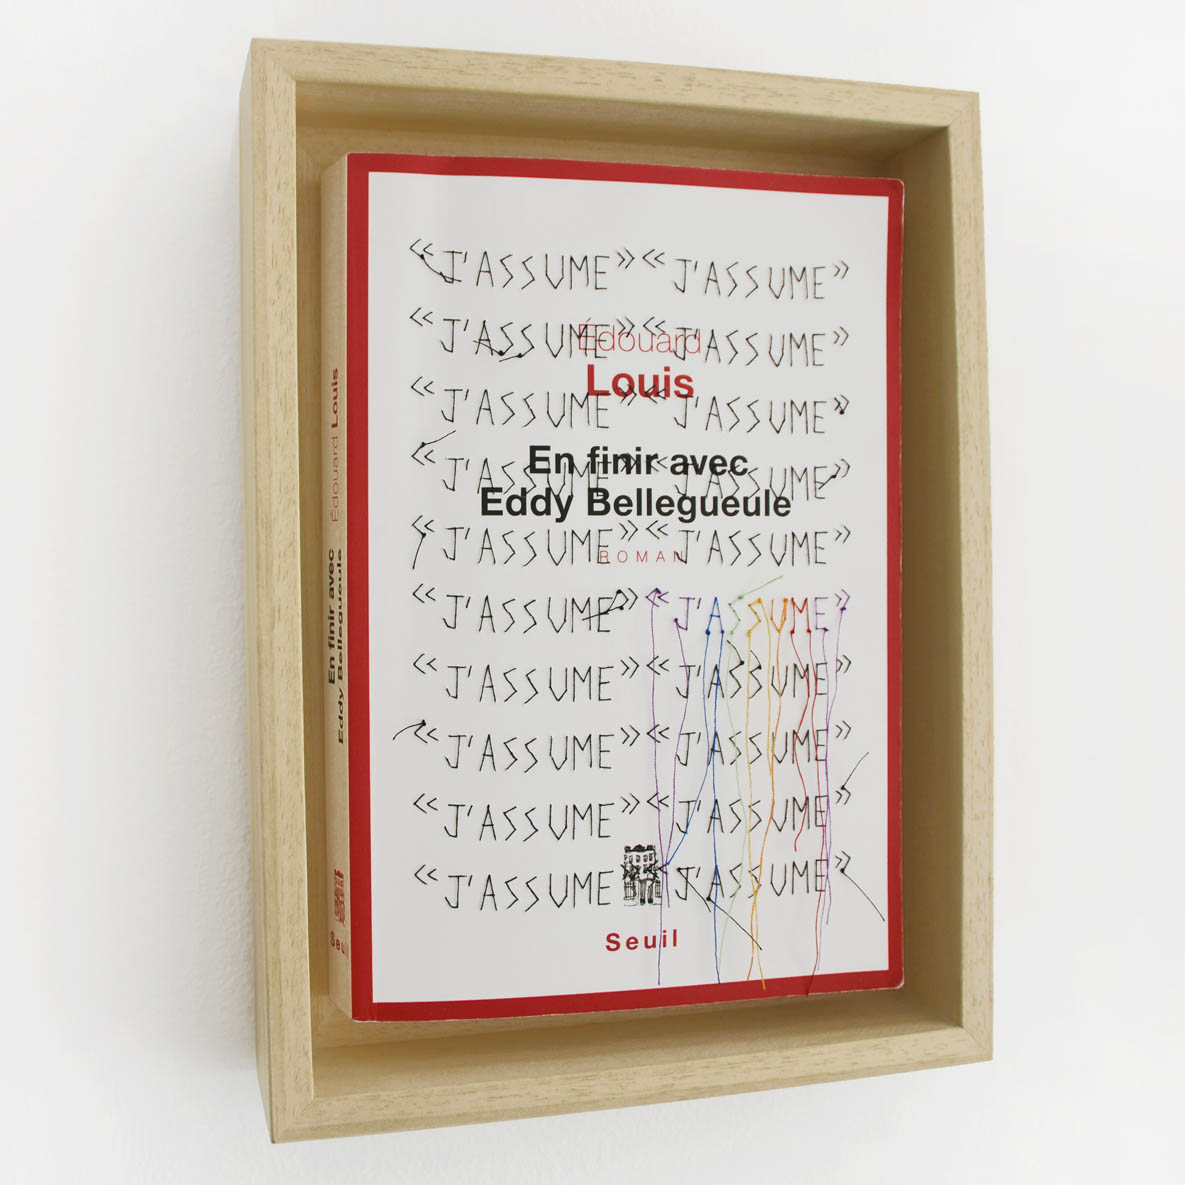 « J'ASSUME » « J'ASSUME »
« J'ASSUME » « J'ASSUME »
Édouard
Louis
« J'ASSUME » « J'ASSUME »
En finir avec
« J'ASSUME » « J'ASSUME »
Eddy Bellegueule
« J'ASSUME » « J'ASSUME »
ROMAN
« J'ASSUME » « J'ASSUME »
« J'ASSUME » « J'ASSUME »
« J'ASSUME » « J'ASSUME »
« J'ASSUME » « J'ASSUME »
« J'ASSUME « J'ASSUME »
Seuil
Édouard Louis
En finir avec
Eddy Bellegueule
Seuil